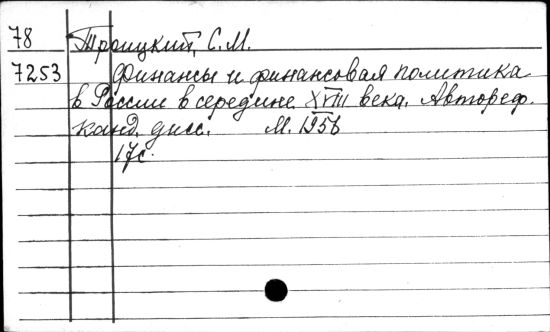 78 Троицкий, С.М.
7253 Финансы и финансовая политика
в России в середине XVIII века. Автореф.
канд. дисс. М. 1956
17с.